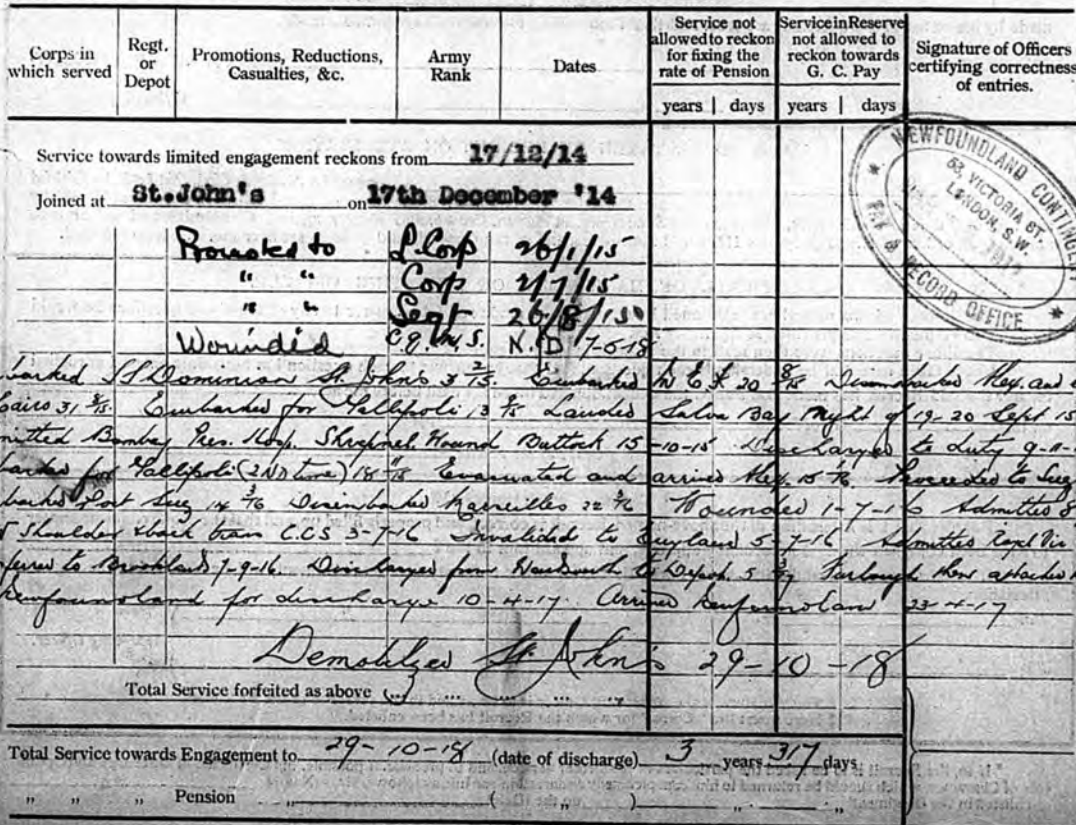 Corps in which served
Regt. or Depot
Promotions, Reductions, Casualties, &c.
Army Rank
Dates
Service not allowed to reckon for fixing the rate of Pension
years days
Service in Reserve not allowed to reckon towards G. C. Pay
years days
Signature of Officers certifying correctness of entries.
Service towards limited engagement reckons from 17/12/14
Joined at St.John's on 17th December '14
NEWFOUNDLAND CONTINGENT
PAY & RECORD OFFICE
53, VICTORIA ST.
LONDON, S.W.
Promoted to L.Corp 26/1/15
" " Corp 2/7/15
" " Sergt 26/8/15
Wounded C.Q.M.S. N.D 7-6-18
barked SS Dominion St. Johns 3 2/15. Embarked 20 8/15 Disembarked Alex. and
Cairo 31 8/15. Embarked for Gallipoli 13 9/15 Landed Sulva Bay Night of 19-20 Sept 15
mitted Bombay Pres. Hosp. Shrapnel Wound Buttock 15-10-15 Discharged to Duty 9-11-
barked for Gallipoli (2nd time) 18 11/15 Evacuated and arrived Alex. 15 1/16 Proceeded to Suez
barked Port Suez 14 3/16 Disembarked Marseilles 22 3/16 Wounded 1-7-16 Admitted
Shoulder & back C.C.S 3-7-16 Invalided to England 5-7-16 Admitted
ferred to Brookland 7-9-16. Discharged from Wandsworth to Depot 5 Furlough then attached
Newfoundland for discharge 10-4-17. Arrived Newfoundland 22-4-17
Demobilzed St. John's 29-10-18
Total Service forfeited as above
Total Service towards Engagement to 29-10-18 (date of discharge) 3 years 317 days
" " " Pension " ( " ) " "